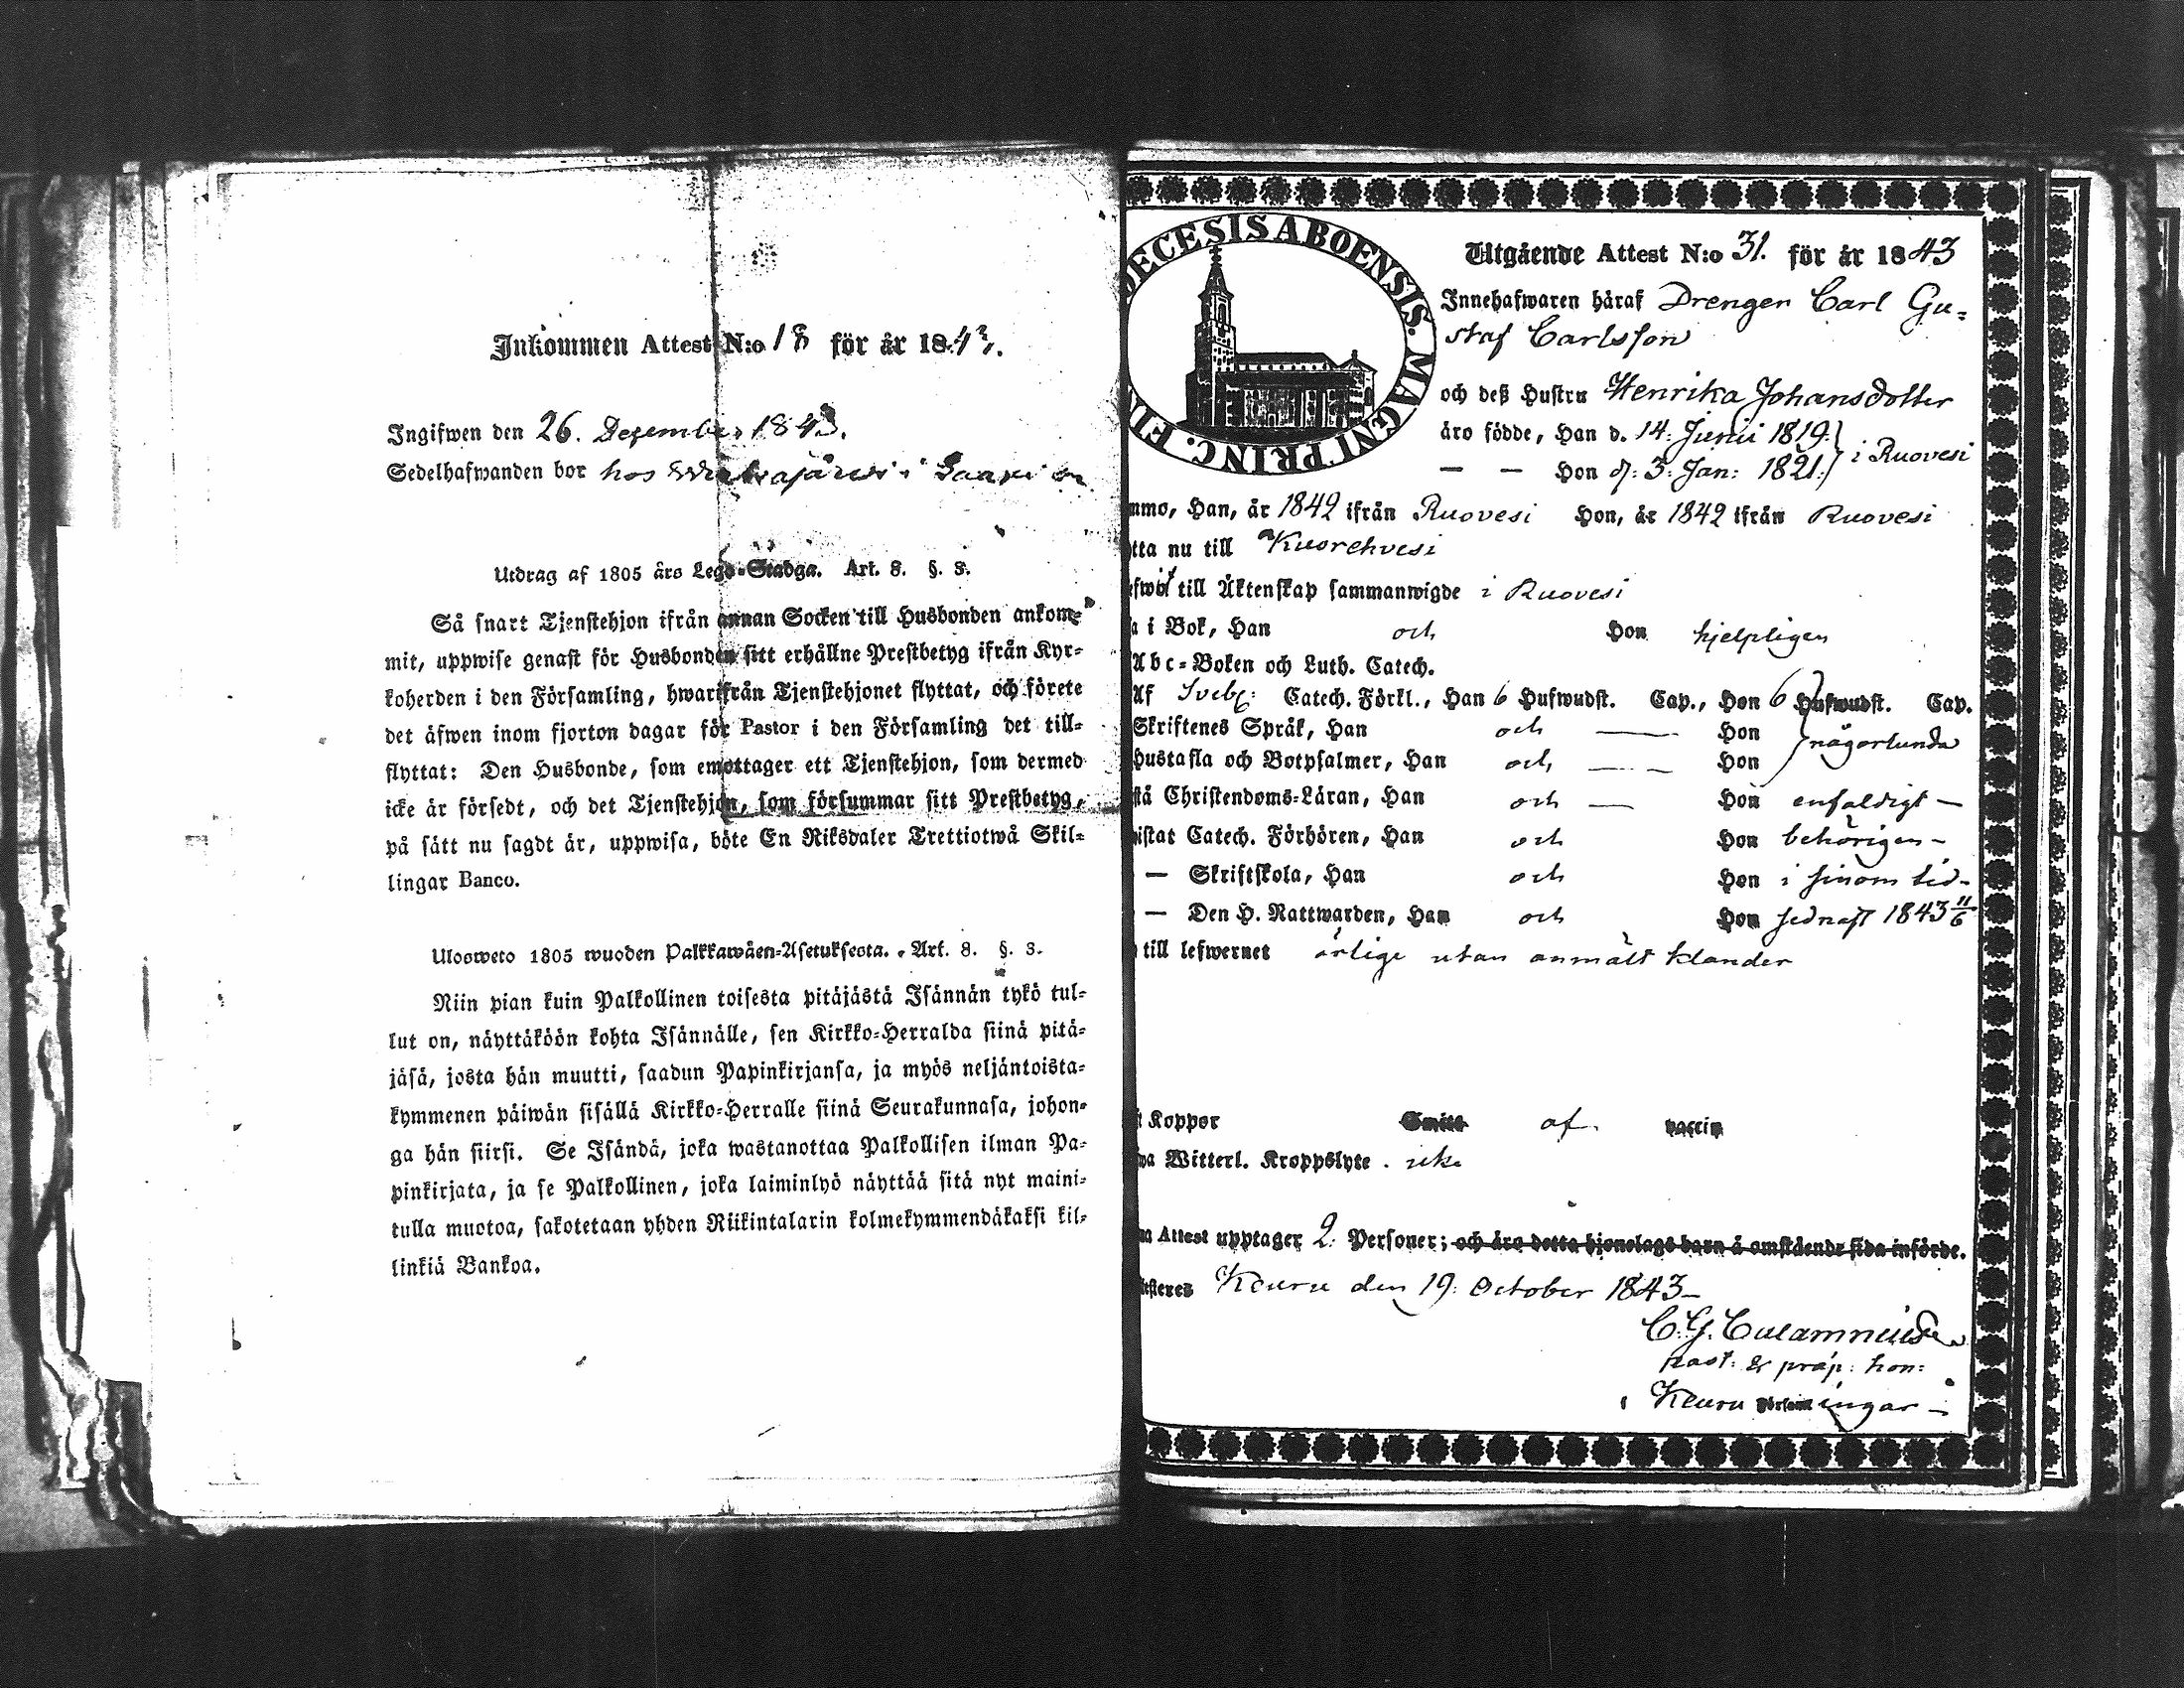 Inkommen Attest N:o 18 för år 1843.
Ingifwen den 26. Dezember 1843.
Sedelhafwanden bor hos i Saari
Utdrag af 1805 års Lego-Stadga. Art. 8. §. 3.
Så snart Tjenstehjon ifrån annan Socken till Husbonden ankom-
mit, uppwise genast för Husbonden sitt erhållne Prestbetyg ifrån Kyr-
koherden i den Församling, hwarifrån Tjenstehjonet flyttat, och förete
det äfwen inom fjorton dagar för Pastor i den Församling det till-
flyttat: Den Husbonde, som emottager ett Tjenstehjon, som dermed
icke är försedt, och det Tjenstehjon, som försummar sitt Prestbetyg,
på sätt nu sagdt är, uppwisa, böte En Riksdaler Trettiotwå Skil-
lingar Banco.
Ulosweto 1805 wuoden Palkkawäen-Asetuksesta. Art. 8. §. 3.
Niin pian kuin Palkollinen toisesta pitäjästä Isännän tykö tul-
lut on, näyttäköön kohta Isännälle, sen Kirkko-Herralda siinä pitä-
jäsä, josta hän muutti, saadun Papinkirjansa, ja myös neljäntoista-
kymmenen päiwän sisällä Kirkko-Herralle siinä Seurakunnasa, johon-
ga hän siirsi. Se Isändä, joka wastanottaa Palkollisen ilman Pa-
pinkirjata, ja se Palkollinen, joka laiminlyö näyttää sitä nyt maini-
tulla muotoa, sakotetaan yhden Riikintalarin kolmekymmendäkaksi kil-
linkiä Bankoa.
DECESIS ABOENSIS. MAGNI PRINC. FIN
Utgående Attest N:o 31. för år 1843
Innehafwaren häraf Drengen Carl Gu-
staf Carlsson
och deß Hustru Henrika Johansdotter
äro födde, Han d. 14: Junii 1819:
— — Hon d: 3: Jan: 1821: i Ruovesi
mmo, Han, år 1842 ifrån Ruovesi Hon, år 1842 ifrån Ruovesi
tta nu till Kuorehvesi
till Äktenskap sammanwigde i Ruovesi
a i Bok, Han och Hon hjelpligen
Abc-Boken och Luth. Catech.
Af Sveb: Catech. Förkl., Han 6 Hufwudst. Cap., Hon 6 Hufwudst. Cap.
Skriftenes Språk, Han och — Hon
någorlunda
Hustafla och Botpsalmer, Han och — Hon
stå Christendoms-Läran, Han och — Hon enfaldigt —
istat Catech. Förhören, Han och Hon behörigen —
— Skriftskola, Han och Hon i sinom tid —
— Den H. Nattwarden, Han och Hon sednast 1843 11/6
till lefwernet ärlige utan anmält klander
t Koppor Smitt af vaccin
wa Witterl. Kroppslyte. icke
Attest upptager 2: Personer; och äro detta hjonelags barn å omstående sida införde.
steres Keuru den 19: October 1843 —
C. G.
past: & præp: hon:
i Keuru Församlingar —